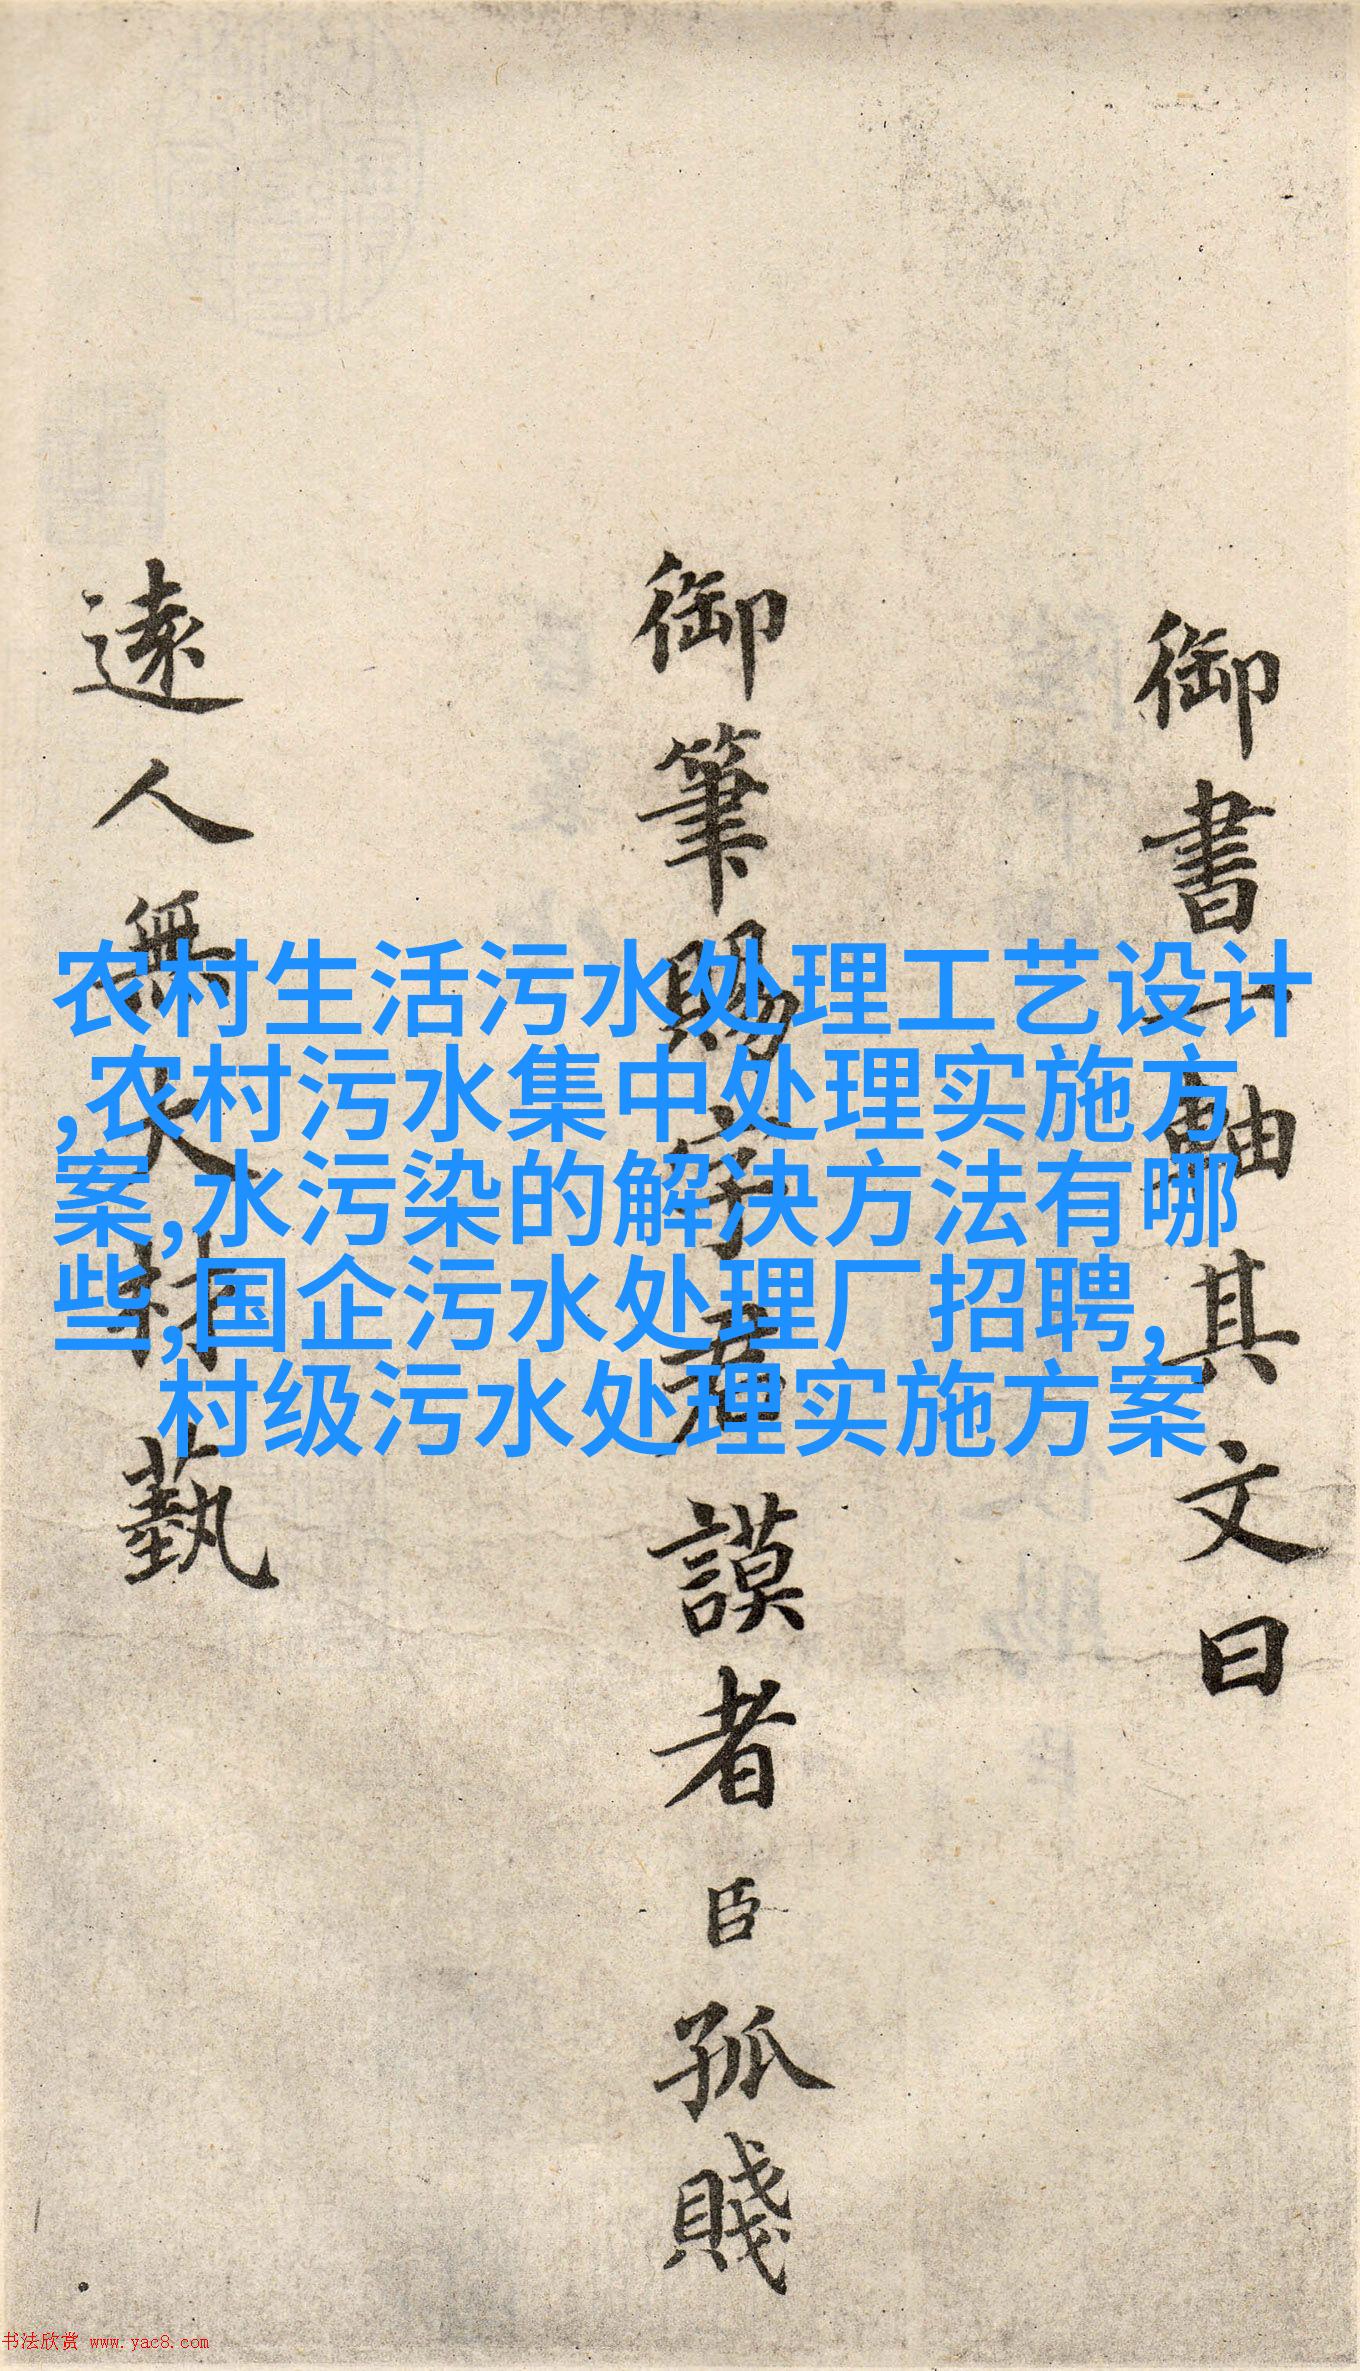 御書一軸其文曰
御筆賜字君謨者臣孤賤
遠人無大材藝
农村生活污水处理工艺设计
,农村污水集中处理实施方
案,水污染的解决方法有哪
些,国企污水处理厂招聘,
村级污水处理实施方案
书法欣赏 www.yac8.com